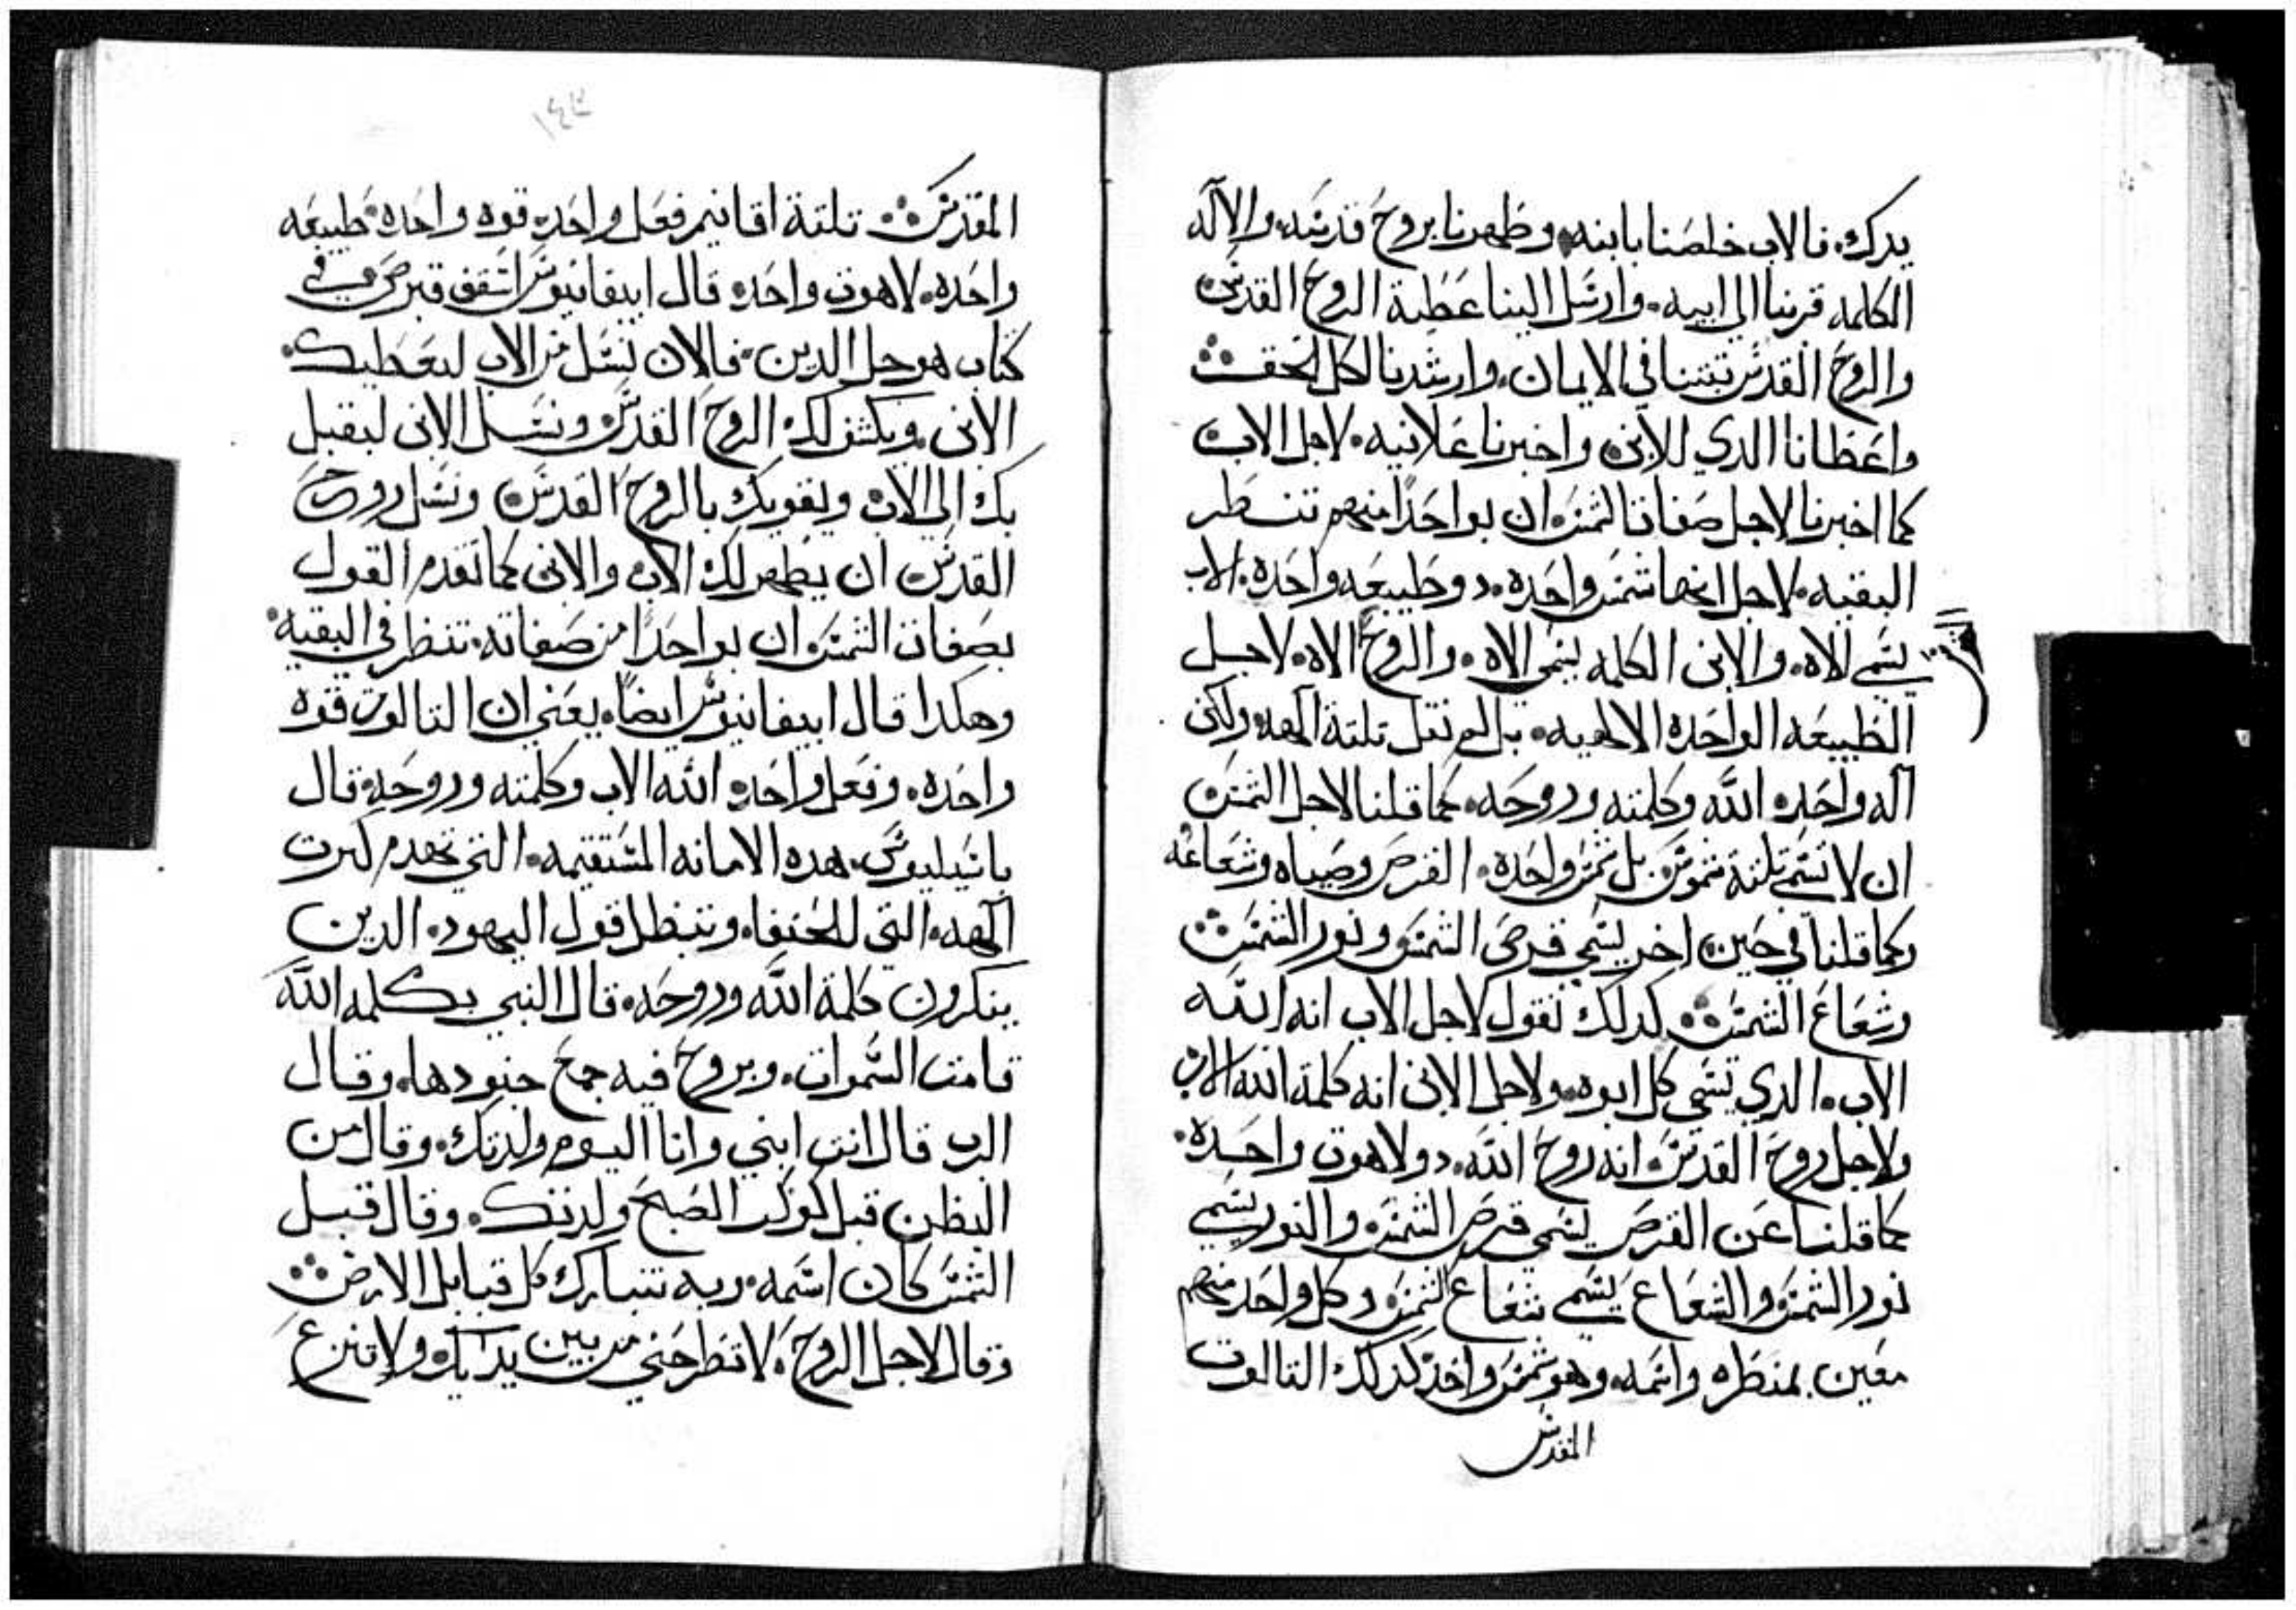 يدرك. فالاب خلصنا بابنه. وطهرنا بروح قدسه. والاله
الكلمه قربنا الي ابيه. وارسل الينا عطية الروح القدس
والروح القدس ثبتنا في الايمان. وارشدنا لكل الحق
واعطانا الدي للابن واخبرنا علانيه. لاجل الاب
كما اخبرنا لاجل صفات الشمس. ان بواحدًا منهم تنظر
البقيه. لاجل انها شمس واحده. دو طبيعه واحده. الاب
يسمي الاه. والابن الكلمه يسمى الاه. والروح الاه. لاجل
الطبيعه الواحده الالهيه. بل لم نقل تلتة الهه. ولكن
اله واحد. الله وكلمته وروحه. كما قلنا لاجل الشمس
ان لا تسمي تلتة شموس بل شمس واحده. القرص وضياه وشعاعه
وكما قلنا في حين اخر يسمي قرص الشمس ونور الشمس
وشعاع الشمس. كدلك نقول لاجل الاب انه الله
الاب. الدي تسمي كل ابوه. ولاجل الابن انه كلمة الله الاب
ولاجل روح القدس. انه روح الله. دو لاهوت واحده.
كما قلنا عن القرص يسمي قرص الشمس. والنور يسمي
نور الشمس والشعاع يسمي شعاع الشمس. وكل واحد منهم
معين بمنظره واسمه. وهو شمس واحد كدلك التالوت
المقدس
١٤٣
المقدس تلتة اقانيم فعل واحد. قوه واحده. طبيعه
واحده. لاهوت واحد. قال ابيفانيوس اسقف قبرص في
كتاب هو حل الدين. فالان نسل من الاب ليعطيك
الابن. ويكشف لك الروح القدس ونسل الابن ليقبل
بك الي الاب ويقويك بالروح القدس ونسل روح
القدس ان يظهر لك الاب والابن كما تقدم القول
بصفات الشمس. ان بواحدًا من صفاته. تنظر في البقيه.
وهكدا قال ابيفانيوس ايضًا. يعني ان التالوت قوه
واحده. وفعل واحد. الله الاب وكلمته وروحه. قال
باسيليوس. هده الامانه المستقيمه. التي تهدم كترت
الهه. التي للحنفا. وتبطل قول اليهود. الدين
ينكرون كلمة الله وروحه. قال النبي بكلمه الله
قامت السموات. وبروح فيه جمع جنودها. وقال
الرب قال انت ابني وانا اليوم ولدتك. وقال من
البطن قبل كوكب الصبح ولدتك. وقال قبل
الشمس كان اسمه. وبه تتبارك كل قبايل الارض
وقال لاجل الروح. لا تطرحني من بين يديك. ولا تنزع